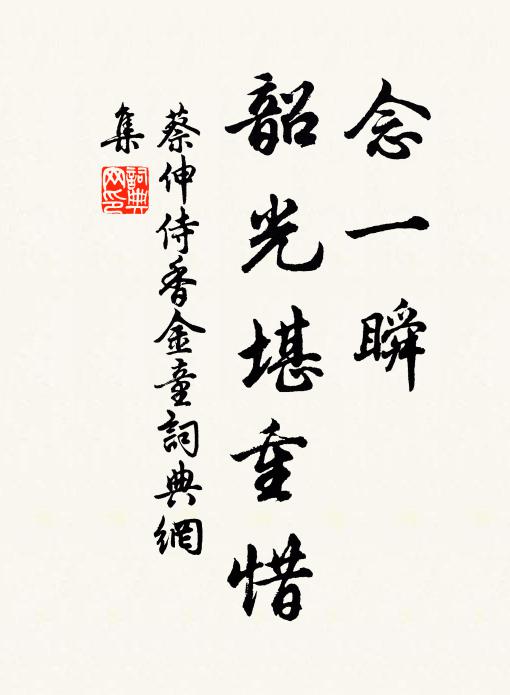 念一瞬
韶光堪重惜
蔡伸侍香金童詞典網
集
詞典
网印